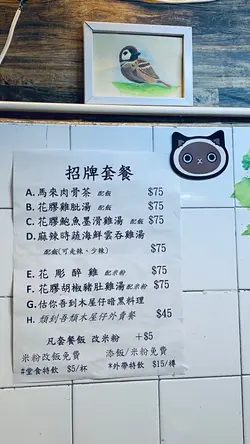 招牌套餐
A.馬來肉骨茶 配飯 $75
B.花膠雞䏜湯 配飯 $75
C.花膠鮑魚墨滑雞湯 配飯 $75
D.麻辣時蔬海鮮雲吞雞湯
配飯(可走辣、少辣) $75
E.花彫醉雞 配米粉 $75
F.花膠胡椒豬肚雞湯 配米粉 $75
G.估你吾到木屋仔暗黑料理
H.顛到吾顛木屋仔外賣餐 $45
凡套餐飯 改米粉 +$5
米粉改飯免費 添飯/米粉免費
*堂食特飲 $5/杯 *外帶特飲 $15/樽